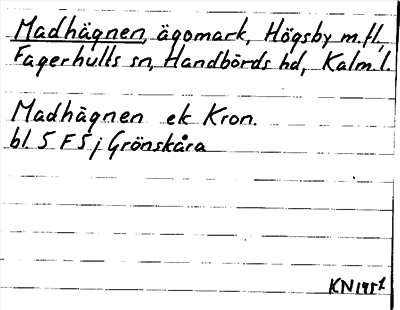 Madhägnen, ägomark, Högsby m.fl,
Fagerhults sn, Handbörds hd, Kalm.l.
Madhägnen ek Kron.
bl 5 F 5 j Grönskåra
KN 1951